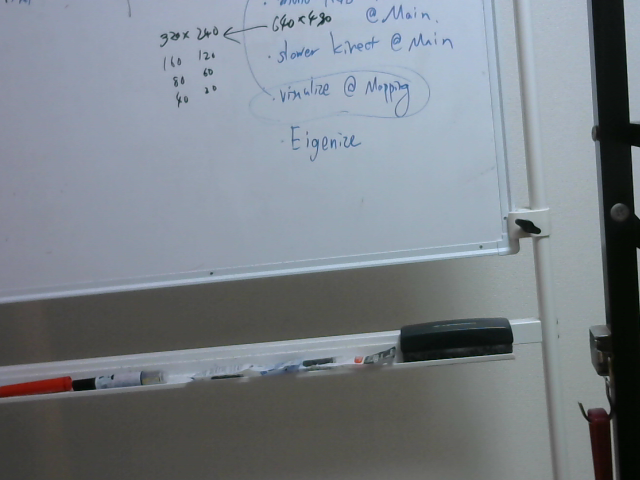 @ Main.
320 × 240 ← 640 × 480
160 120
80 60
40 30
· slower kinect @ Main
· visualize @ Mapping
· Eigenize